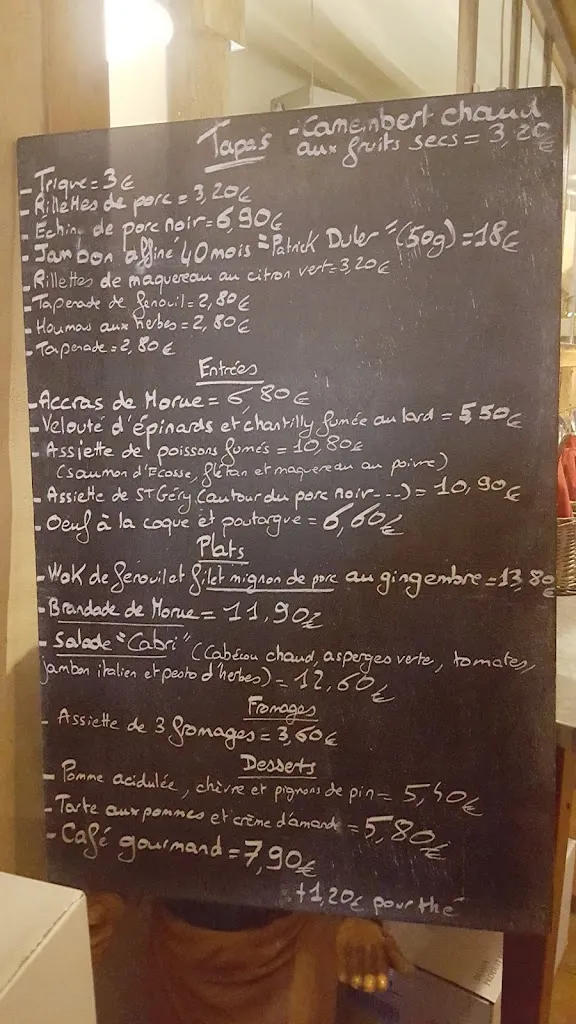 Tapas - Camembert chaud
aux fruits secs = 3,20€
- Trique = 3€
- Rillettes de porc = 3,20€
- Echine de porc noir = 6,90€
- Jambon affiné 40 mois "Patrick Duler" (50g) = 18€
- Rillettes de maquereau au citron vert = 3,20€
- Tapenade de fenouil = 2,80€
- Houmous aux herbes = 2,80€
- Tapenade = 2,80€
Entrées
- Accras de Morue = 6,80€
- Velouté d'épinards et chantilly fumée au lard = 5,50€
- Assiette de poissons fumés = 10,80€
(saumon d'Ecosse, flétan et maquereau au poivre)
- Assiette de St Géry (autour du porc noir---) = 10,90€
- Oeuf à la coque et poutargue = 6,60€
Plats
- Wok de fenouil et filet mignon de porc au gingembre = 13,80
- Brandade de Morue = 11,90€
- Salade "Cabri" (Cabécou chaud, asperges verte, tomates,
jambon italien et pesto d'herbes) = 12,60€
Fromages
- Assiette de 3 fromages = 3,60€
Desserts
- Pomme acidulée, chèvre et pignons de pin = 5,40€
- Tarte aux pommes et crème d'amande = 5,80€
- Café gourmand = 7,90€
+1,20€ pour thé